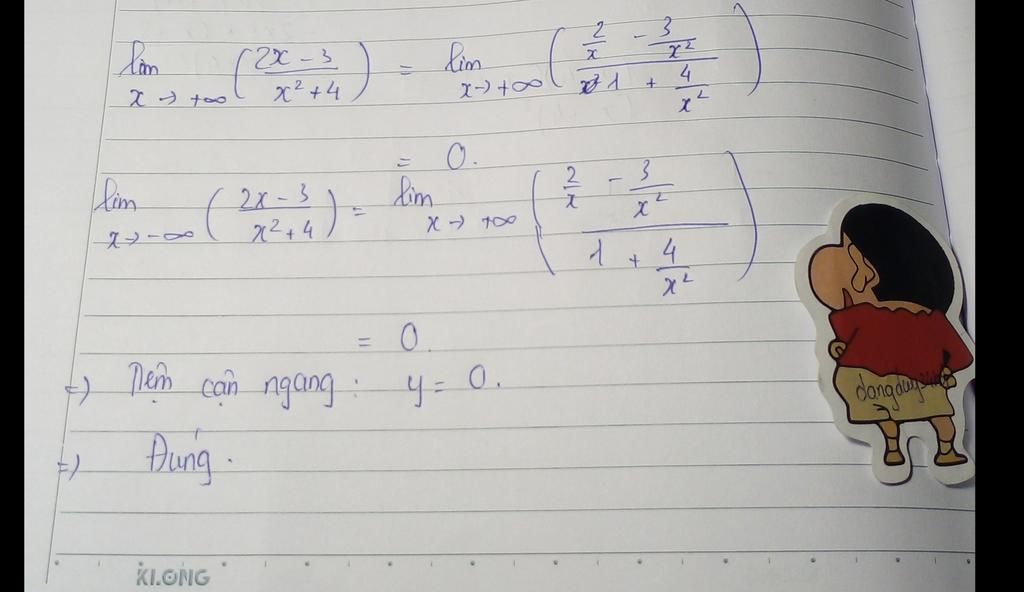 lim x→+∞ (2x − 3 / x² + 4) = lim x→+∞ (2/x − 3/x² / 1 + 4/x²)
= 0.
lim x→−∞ (2x − 3 / x² + 4) = lim x→+∞ (2/x − 3/x² / 1 + 4/x²)
= 0.
=) Tiệm cận ngang : y = 0.
=) Đúng.
KLONG